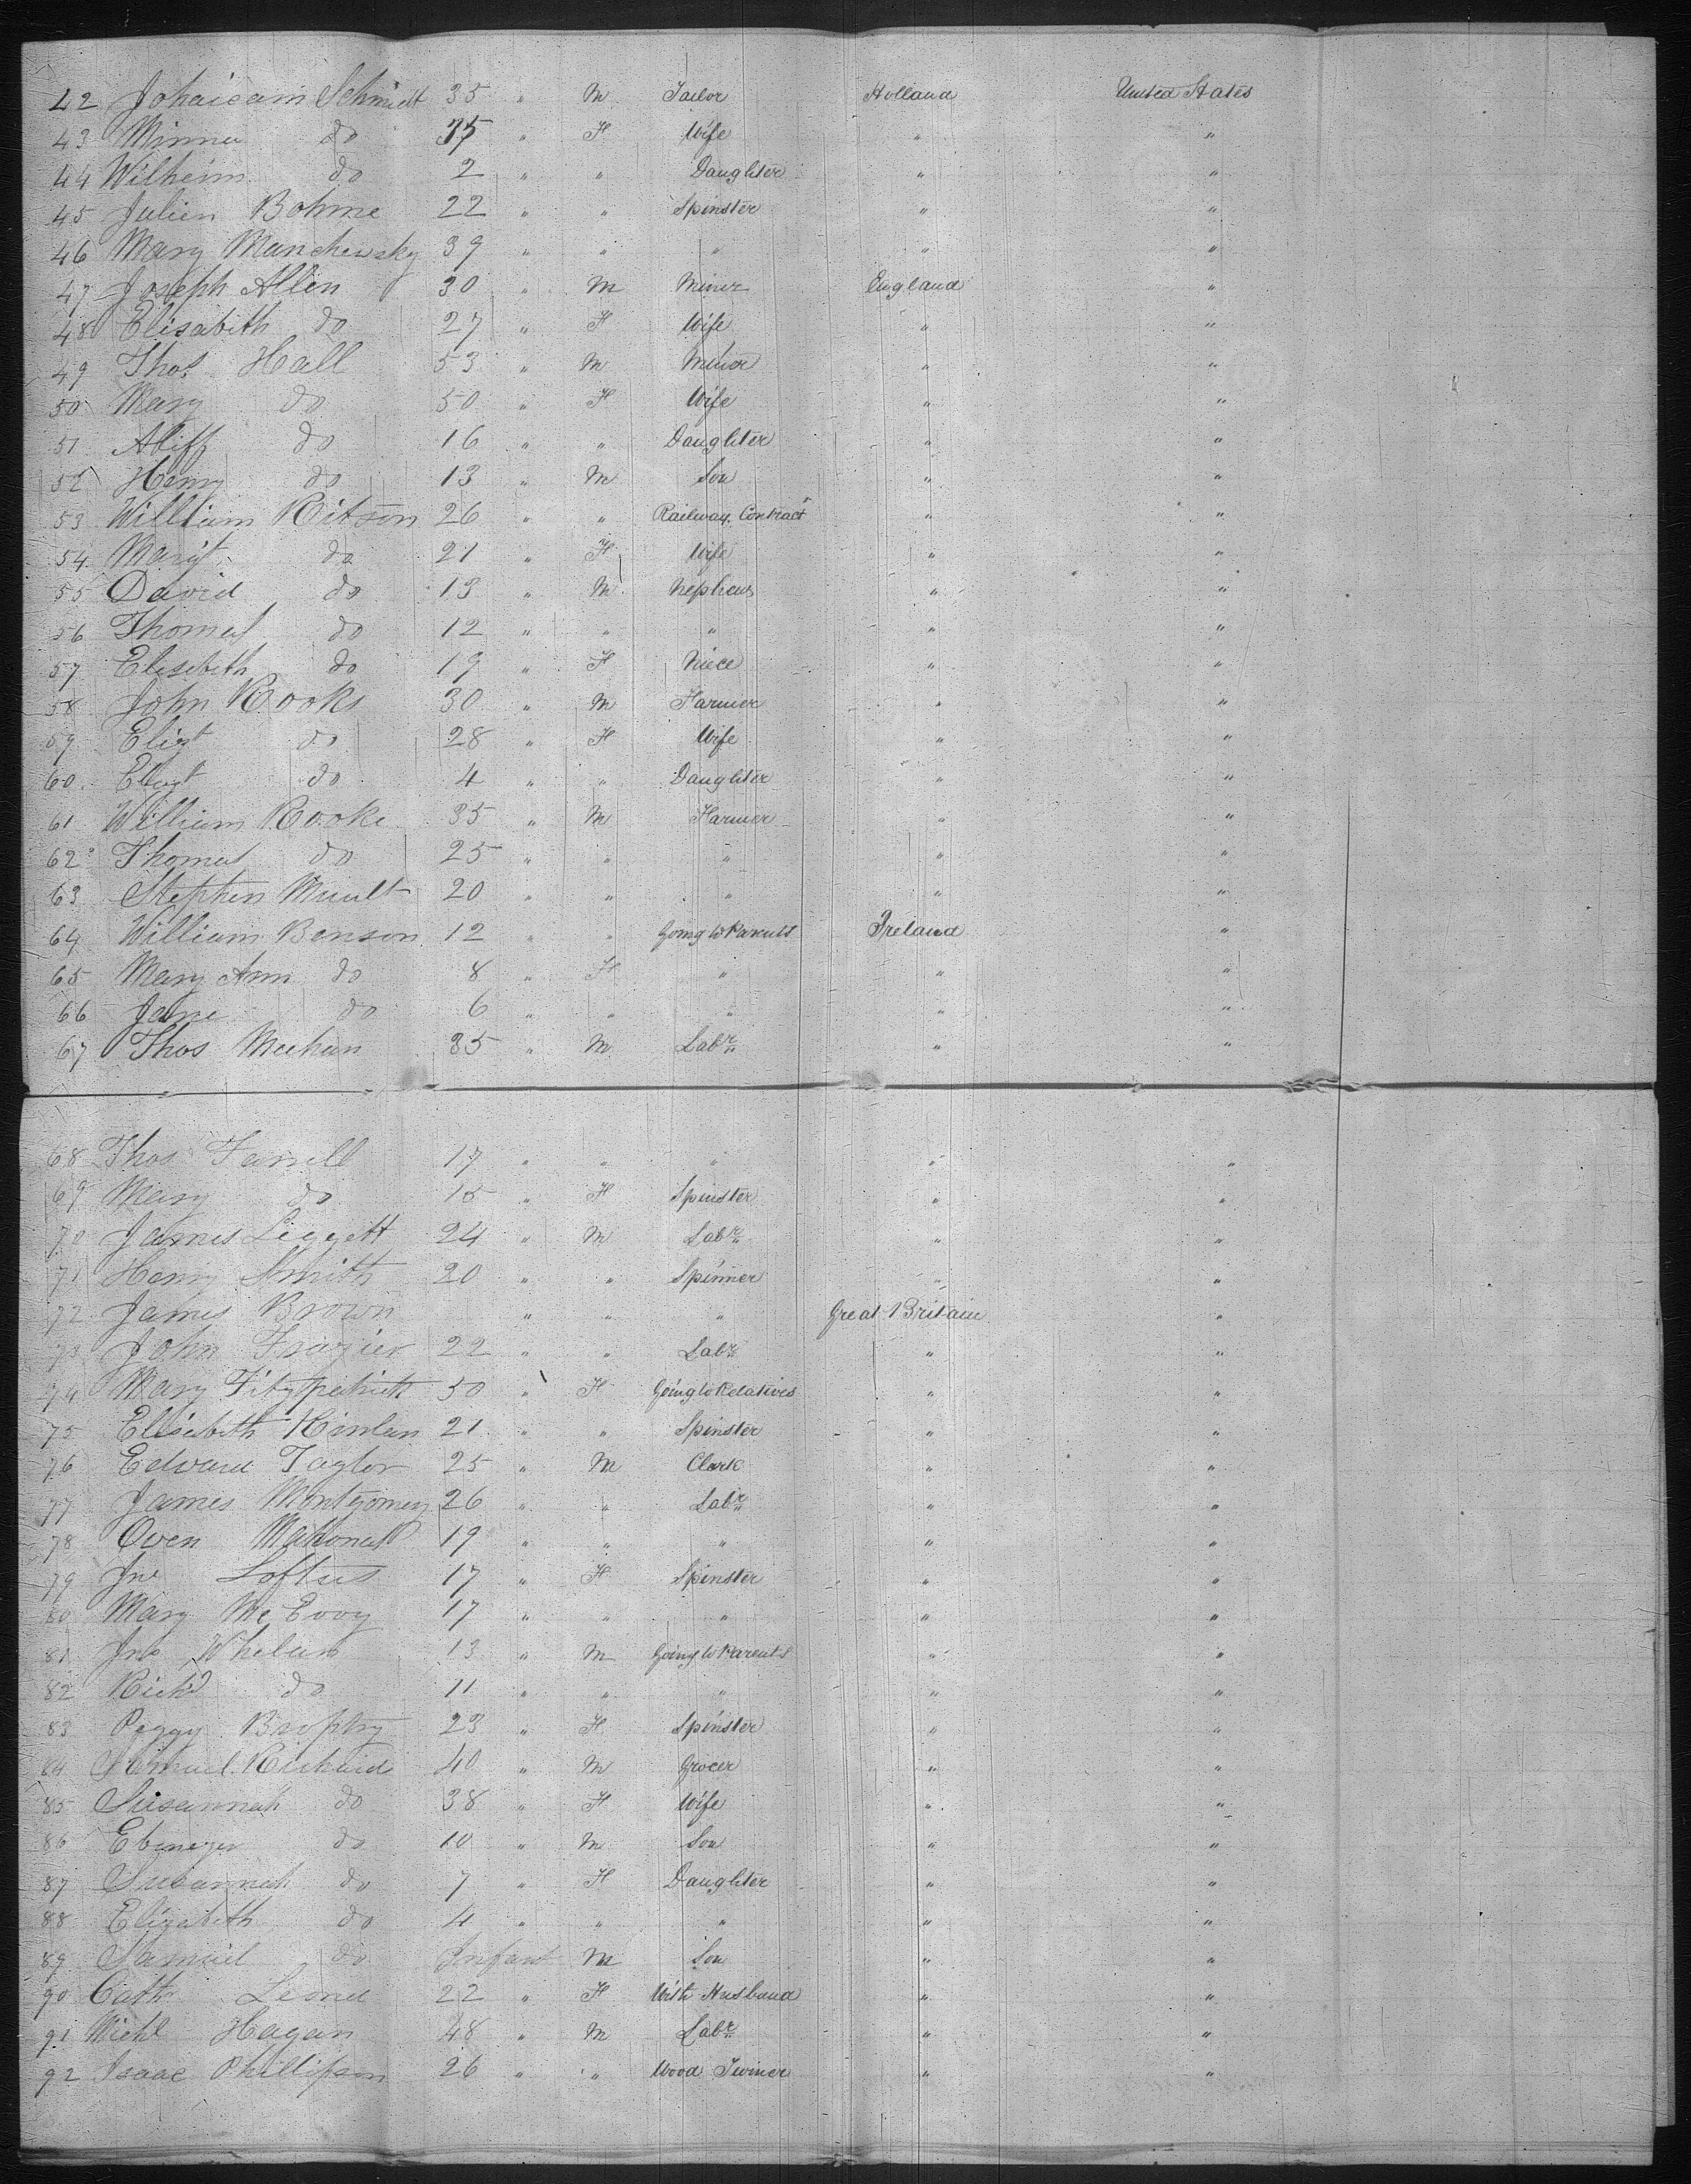 42 Johaicam Schmidt 35 " M Tailor Holland United States
43 Minna do 35 " F Wife " "
44 Wilheim do 2 " " Daughter " "
45 Julien Bohme 22 " " Spinster " "
46 Mary Manchewsky 39 " " " " "
47 Joseph Allen 30 " M Miner England "
48 Elisabith do 27 " F Wife " "
49 Thos Hall 53 " M Miner " "
50 Mary do 50 " F Wife " "
51 do 16 " " Daughter " "
52 Henry do 13 " M Son " "
53 William Ritson 26 " " Railway Contractr " "
54 Margt do 21 " F Wife " "
55 David do 13 " M Nephew " "
56 Thomas do 12 " " " " "
57 Elisebith do 19 " F Niece " "
58 John Rooks 30 " M Farmer " "
59 Elizt do 28 " F Wife " "
60 Elizt do 4 " " Daughter " "
61 William Rooke 35 " M Farmer " "
62 Thomas do 25 " " " " "
63 Stephen 20 " " " " "
64 William Benson 12 " " Going to Parents Ireland "
65 Mary Ann do 8 " F " " "
66 Jane do 6 " " " " "
67 Thos Meehan 35 " M Labr " "
68 Thos Farrell 17 " " " " "
69 Mary do 15 " F Spinster " "
70 James Liggett 24 " M Labr " "
71 Henry Smith 20 " " Spinner " "
72 James Brown " " " Great Britain "
73 John Frazier 22 " " Labr " "
74 Mary Fitzpatrick 50 " F Going to Relatives " "
75 Elisebith Kinlan 21 " " Spinster " "
76 Edward Taylor 25 " M Clerk " "
77 James Montgomery 26 " " Labr " "
78 Owen 19 " " " " "
79 Jne Loftus 17 " F Spinster " "
80 Mary McEvoy 17 " " " " "
81 Jno Whelan 13 " M Going to Parents " "
82 Richd do 11 " " " " "
83 Peggy Brophy 23 " F Spinster " "
84 Samuel Richards 40 " M Grocer " "
85 Susannah do 38 " F Wife " "
86 Ebenezer do 10 " M Son " "
87 Susannah do 7 " F Daughter " "
88 Elizabeth do 4 " " " " "
89 Samuel do Infant M Son " "
90 Cath 22 " F With Husband " "
91 Michl Hagan 48 " M Labr " "
92 Isaac Phillipson 26 " " Wood Turner " "